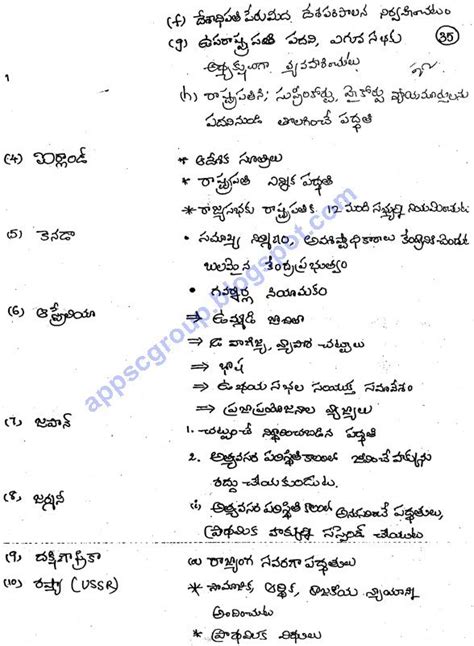 (f) దేశాధిపతి పేరుమీద దేశపరిపాలన నిర్వహించుటం
(g) ఉపరాష్ట్రపతి పదవి, ఎగువ సభకు (35)
అధ్యక్షులుగా వ్యవహరించుట
1
(h) రాష్ట్రపతిని, సుప్రీంకోర్టు, హైకోర్టు న్యాయమూర్తులను
పదవినుండి తొలగించే పద్ధతి
(4) ఐర్లాండ్ * ఆదేశిక సూత్రాలు
* రాష్ట్రపతి ఎన్నిక పద్ధతి
* రాజ్యసభకు రాష్ట్రపతిచే 12 మంది సభ్యుల్ని నియమించుట
(5) కెనడా • సమాఖ్య నిర్మాణం, అవశిష్టాధికారాలు కేంద్రానికి చెందుట
బలమైన కేంద్రప్రభుత్వం
• గవర్నర్ల నియామకం
(6) ఆస్ట్రేలియా ⇒ ఉమ్మడి జాబితా
⇒ వాణిజ్య, వ్యాపార చట్టాలు
⇒ భాష
⇒ ఉభయ సభల సంయుక్త సమావేశం
⇒ ప్రజాప్రయోజనాల
(7) జపాన్ 1. చట్టంచే నిర్ధారించబడిన పద్ధతి
2. అత్యవసర పరిస్థితి కాలంలో జీవించే హక్కును
రద్దు చేయకుండుట.
(8) జర్మనీ (i) అత్యవసర పరిస్థితి కాలంలో అనుసరించే పద్ధతులు,
ప్రాథమిక హక్కుల్ని సస్పెండ్ చేయుట
(9) దక్షిణాఫ్రికా (a) రాజ్యాంగ సవరణా పద్ధతులు
(10) రష్యా (USSR) * సామాజిక, ఆర్థిక, రాజకీయ న్యాయాన్ని
అందించుట
* ప్రాథమిక విధులు
appscgroup.blogspot.com